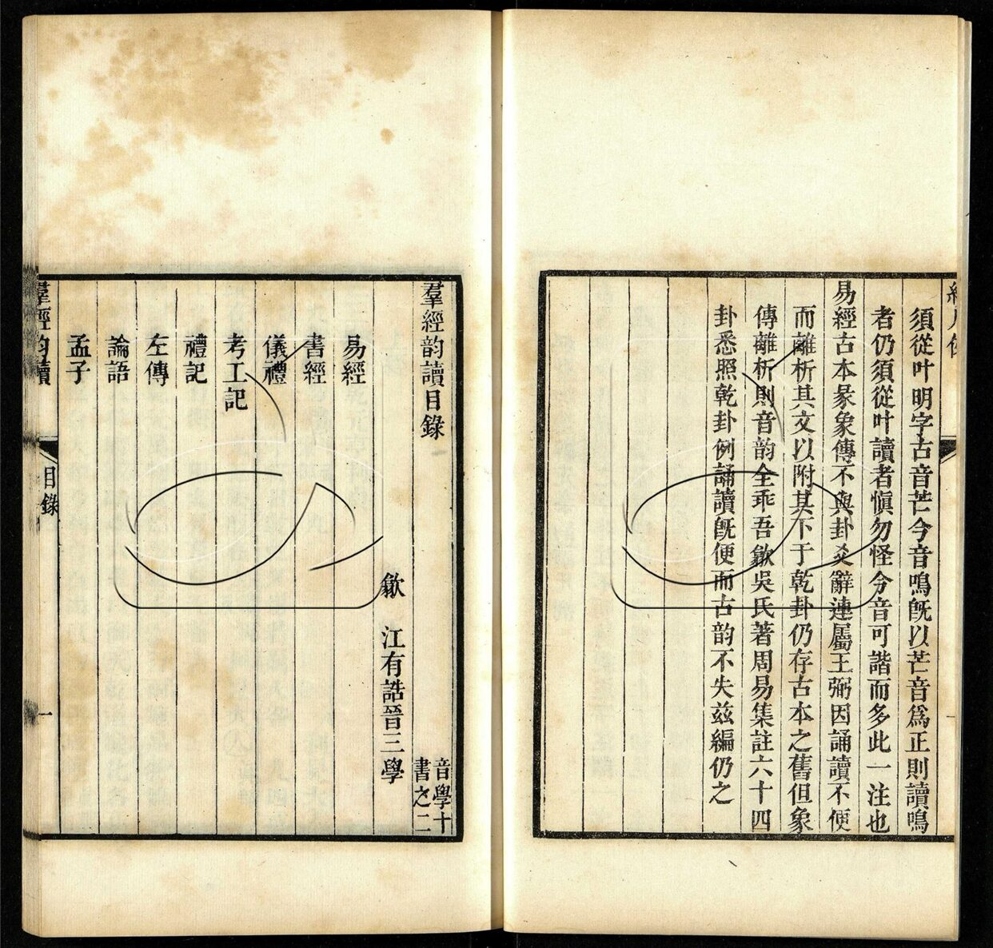 須從叶明字古音芒今音鳴旣以芒音爲正則讀鳴
者仍須從叶讀者愼勿怪今音可諧而多此一注也
易經古本彖象傳不與卦爻辭連屬王弼因誦讀不便
而離析其文以附其下于乾卦仍存古本之舊但象
傳離析則音韵全乖吾歙吳氏著周易集註六十四
卦悉照乾卦例誦讀旣便而古韵不失兹編仍之
羣經韵讀目錄
音學十
書之二
歙 江有誥晉三學
易經
書經
儀禮
考工記
禮記
左傳
論語
孟子
羣經韵讀 目錄 一